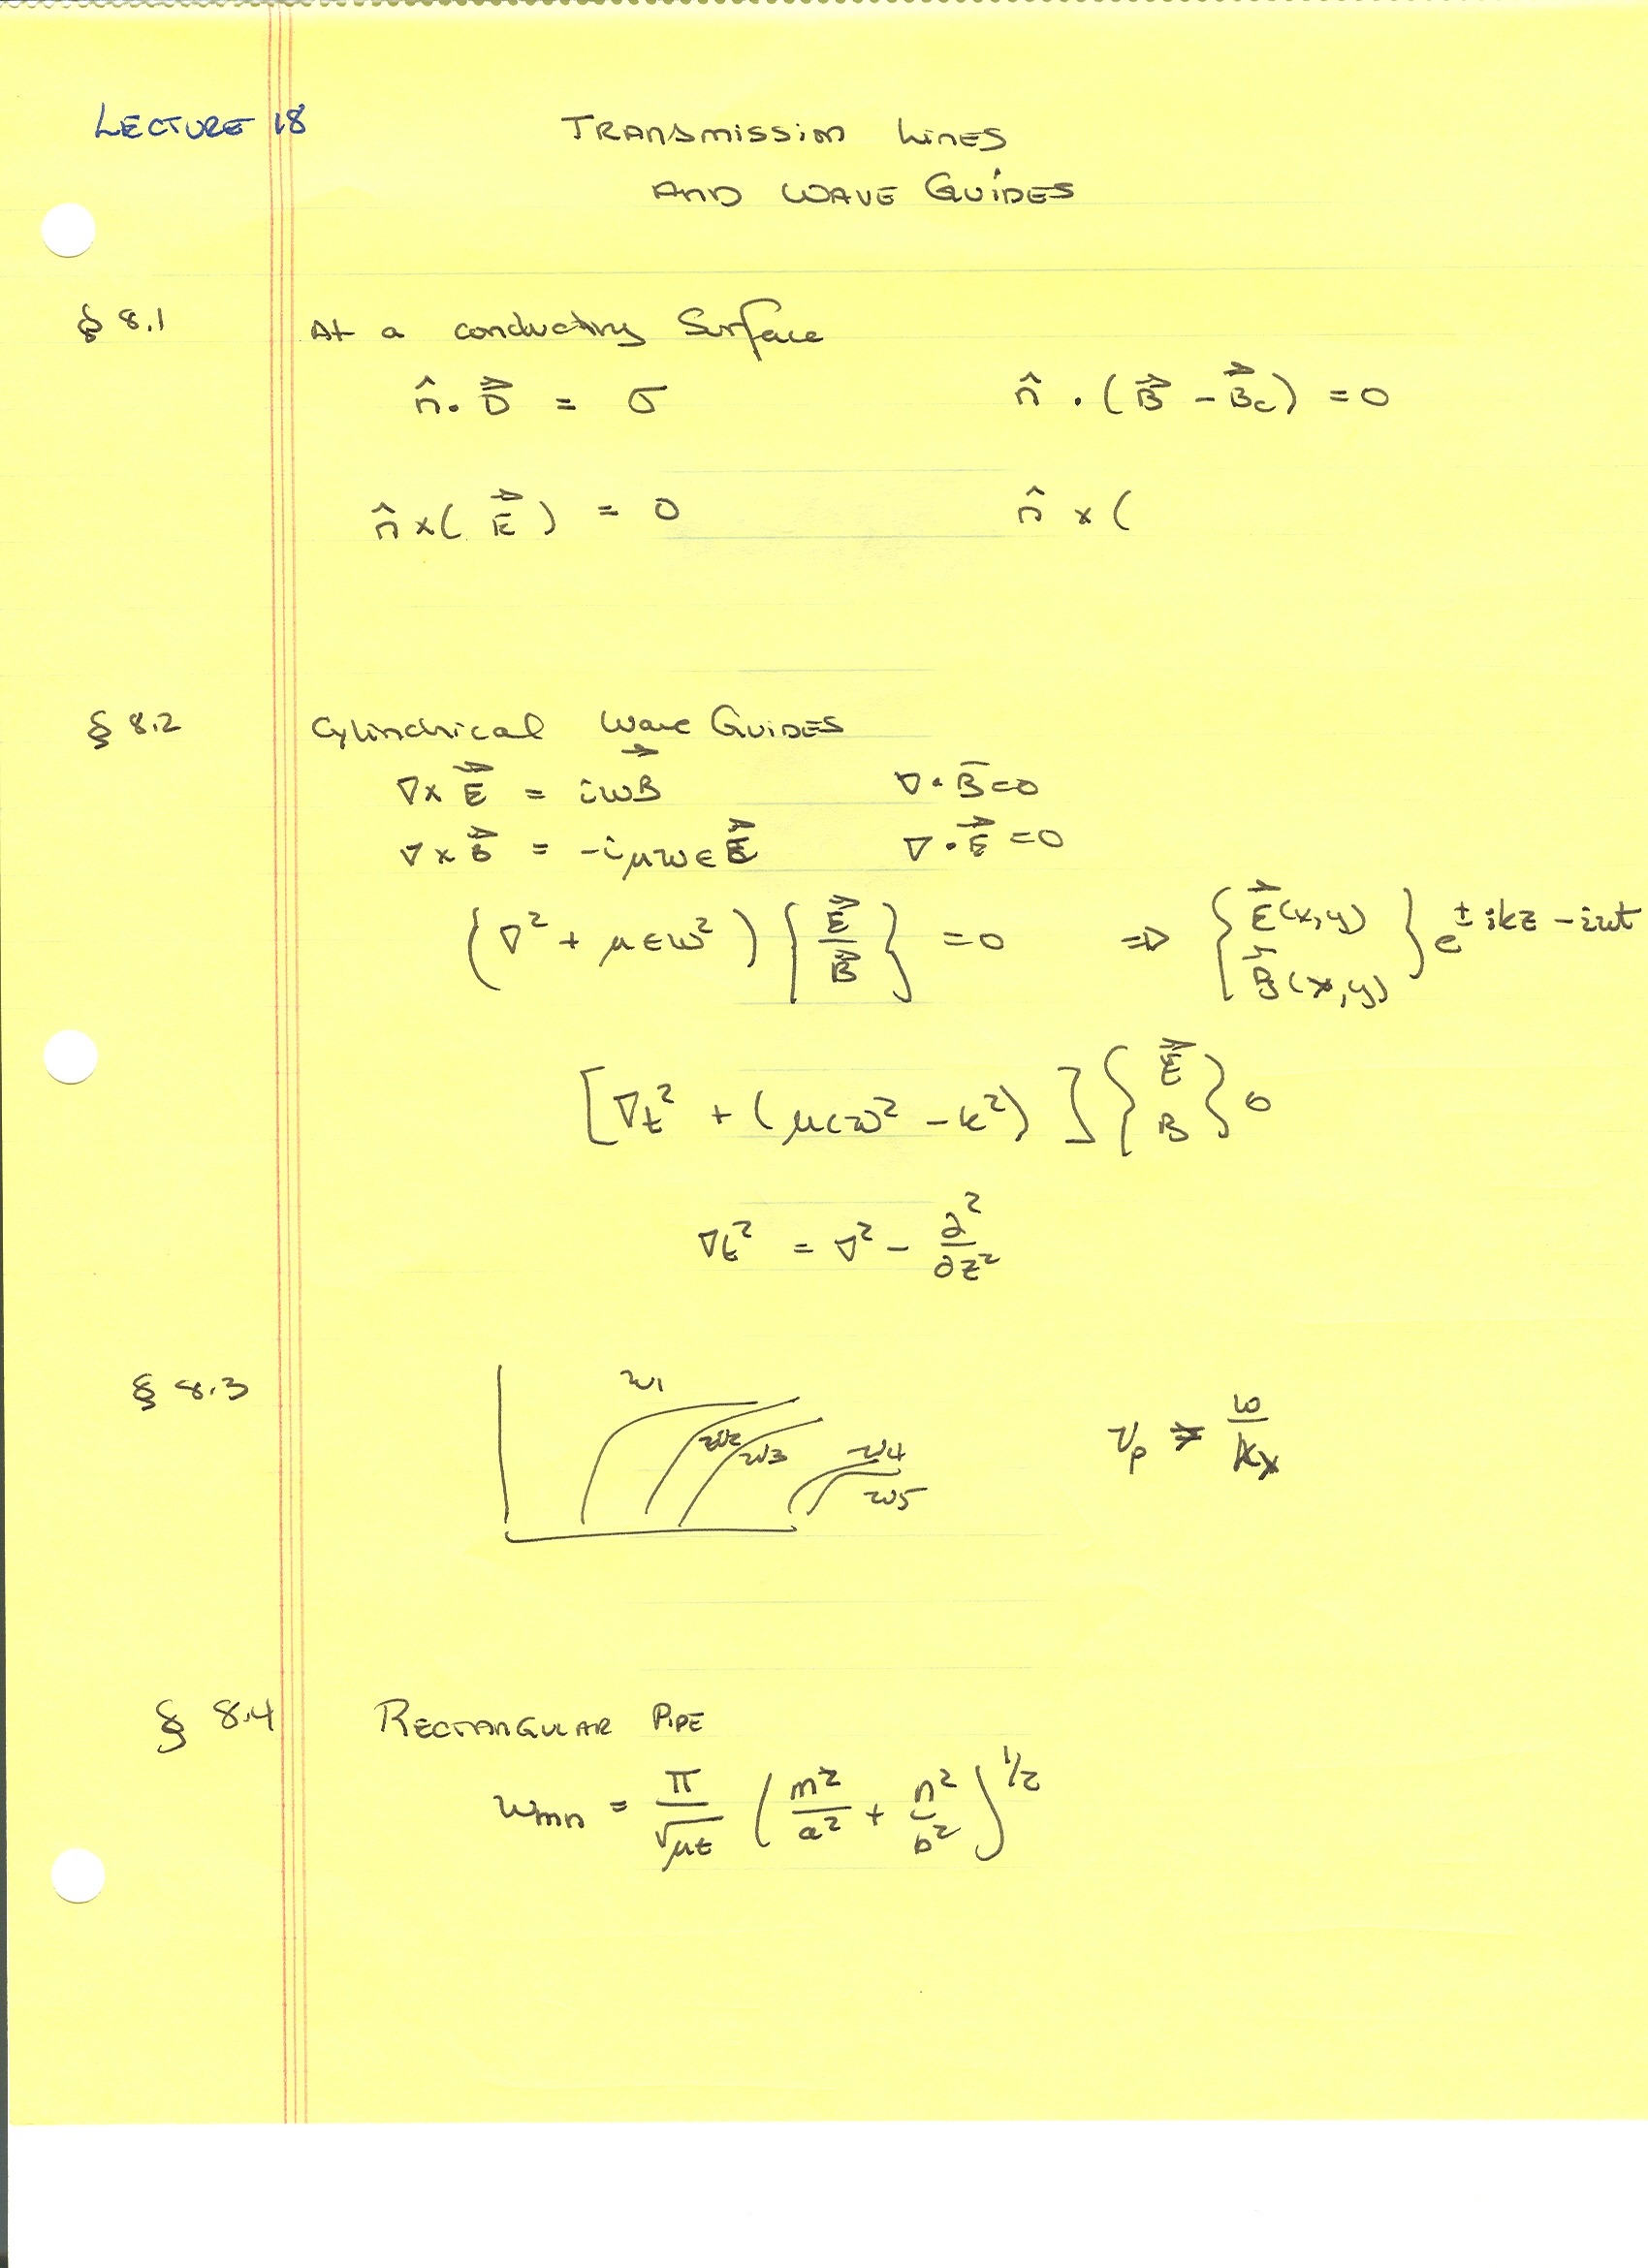 LECTURE 18
TRANSMISSION LINES
AND WAVE GUIDES
§ 8.1 At a conducting Surface
n̂ · D⃗ = σ    n̂ · (B⃗ − B⃗c) = 0
n̂ × ( E⃗ ) = 0    n̂ × (
§ 8.2 Cylindrical Wave GUIDES
∇× E⃗ = iωB⃗    ∇ · B̄ = 0
∇ × B⃗ = −iμωϵE⃗    ∇ · E⃗ = 0
(∇² + μϵω²) { E⃗ / B⃗ } = 0 ⇒ { E⃗(x,y) B⃗(x,y) } e^{± ikz − iωt}
[∇t² + (μϵω² − k²)] { E⃗ B } 0
∇t² = ∇² − ∂²/∂z²
§ 8.3 ω1 ω2 ω3 ω4 ω5    vp = ω/kλ
§ 8.4 RECTANGULAR PIPE
ωmn = π/√μϵ (m²/a² + n²/b²)^{1/2}